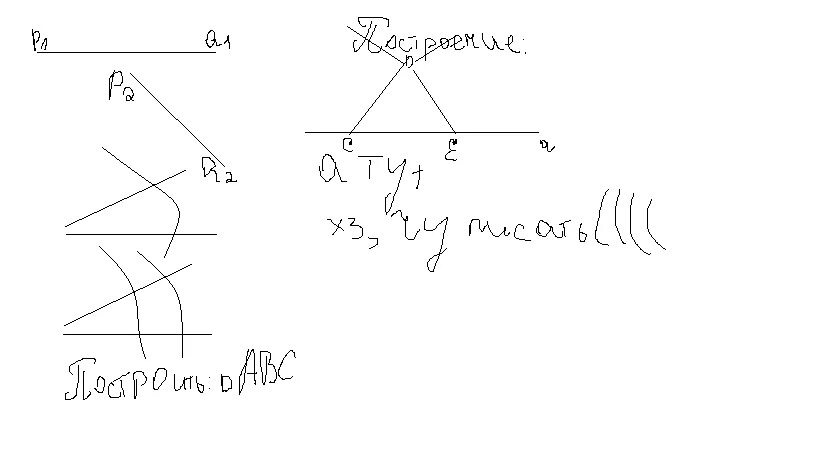 P1 Q1
P2
Q2
Построить: DABC
Построение:
D
C E a
а тут
хз, чу писать((((